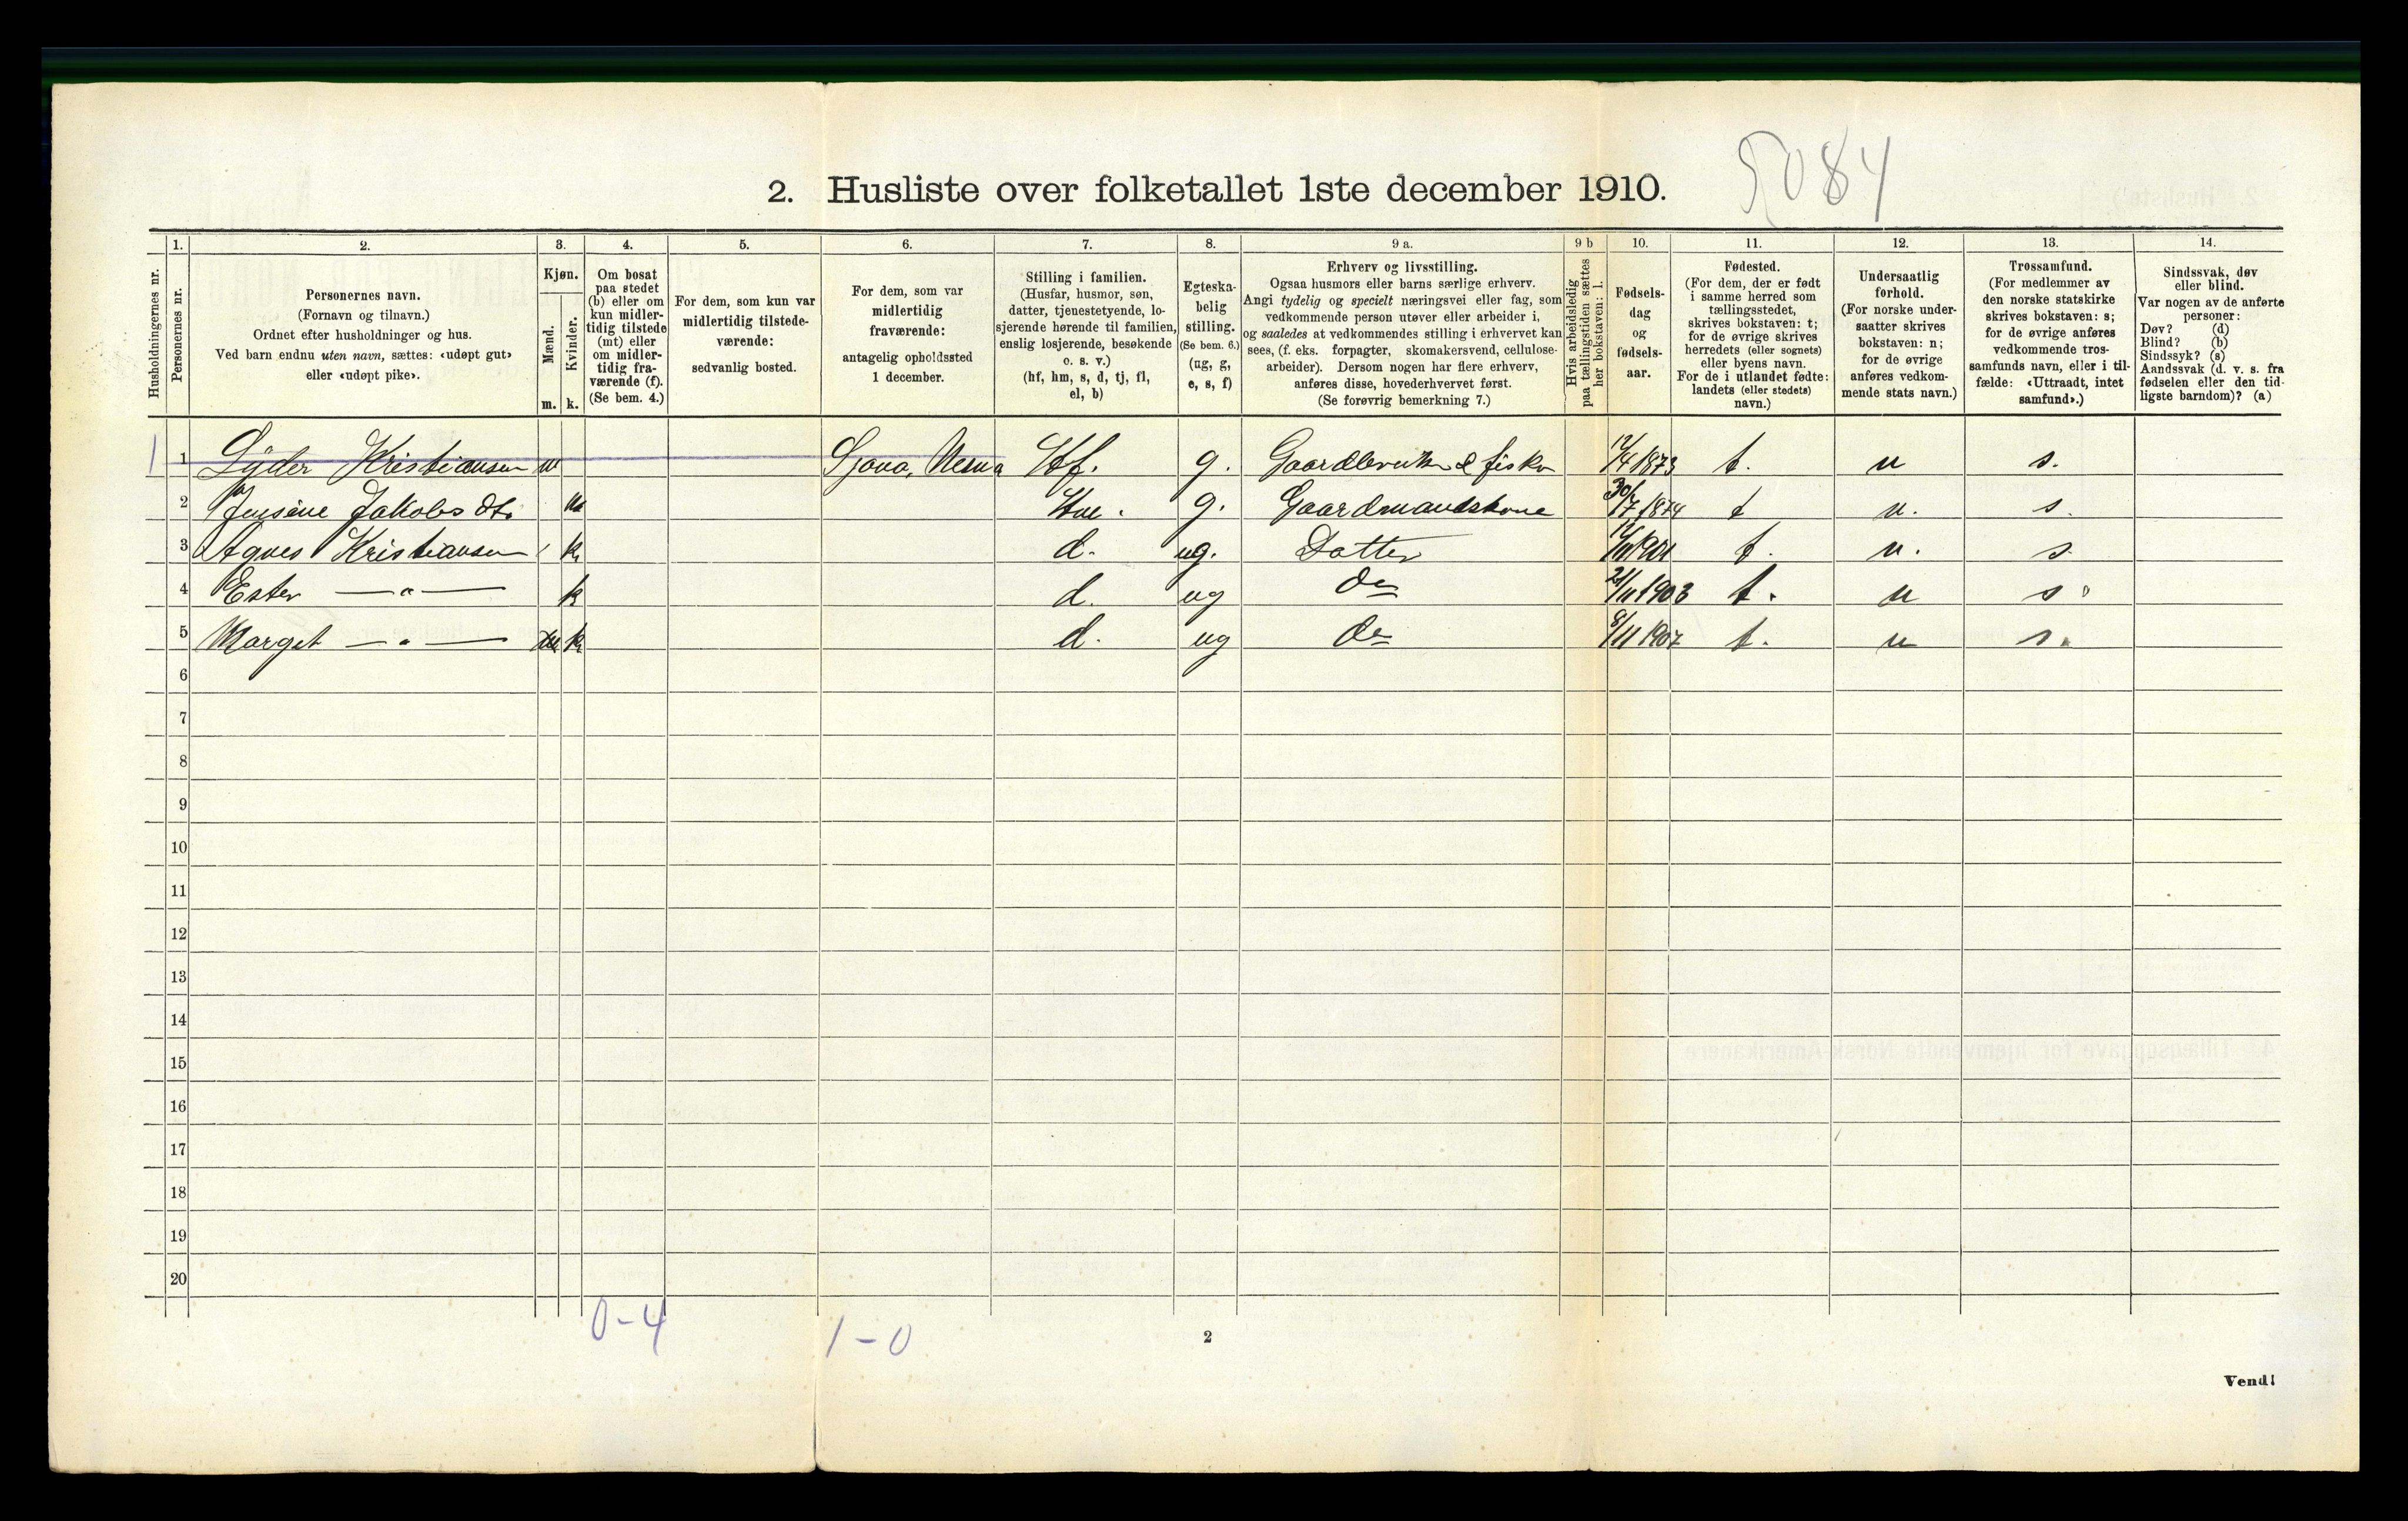 2. Husliste over folketallet 1ste december 1910.
5084
Husholdningernes nr.
1.
Personernes nr.
2.
Personernes navn.
(Fornavn og tilnavn.)
Ordnet efter husholdninger og hus.
Ved barn endnu uten navn, sættes: «udøpt gut»
eller «udøpt pike».
3.
Kjøn.
Mænd.
Kvinder.
m. k.
4.
Om bosat
paa stedet
(b) eller om
kun midler-
tidig tilstede
(mt) eller
om midler-
tidig fra-
værende (f).
(Se bem. 4.)
5.
For dem, som kun var
midlertidig tilstede-
værende:
sedvanlig bosted.
6.
For dem, som var
midlertidig
fraværende:
antagelig opholdssted
1 december.
7.
Stilling i familien.
(Husfar, husmor, søn,
datter, tjenestetyende, lo-
sjerende hørende til familien,
enslig losjerende, besøkende
o. s. v.)
(hf, hm, s, d, tj, fl,
el, b)
8.
Egteska-
belig
stilling.
(Se bem. 6.)
(ug, g,
e, s, f)
9 a.
Erhverv og livsstilling.
Ogsaa husmors eller barns særlige erhverv.
Angi tydelig og specielt næringsvei eller fag, som
vedkommende person utøver eller arbeider i,
og saaledes at vedkommendes stilling i erhvervet kan
sees, (f. eks. forpagter, skomakersvend, cellulose-
arbeider). Dersom nogen har flere erhverv,
anføres disse, hovederhvervet først.
(Se forøvrig bemerkning 7.)
9 b
Hvis arbeidsledig
paa tællingstiden sættes
her bokstaven: l.
10.
Fødsels-
dag
og
fødsels-
aar.
11.
Fødested.
(For dem, der er født
i samme herred som
tællingsstedet,
skrives bokstaven: t;
for de øvrige skrives
herredets (eller sognets)
eller byens navn.
For de i utlandet fødte:
landets (eller stedets)
navn.)
12.
Undersaatlig
forhold.
(For norske under-
saatter skrives
bokstaven: n;
for de øvrige
anføres vedkom-
mende stats navn.)
13.
Trossamfund.
(For medlemmer av
den norske statskirke
skrives bokstaven: s;
for de øvrige anføres
vedkommende tros-
samfunds navn, eller i til-
fælde: «Uttraadt, intet
samfund».)
14.
Sindssvak, døv
eller blind.
Var nogen av de anførte
personer:
Døv? (d)
Blind? (b)
Sindssyk? (s)
Aandssvak (d. v. s. fra
fødselen eller den tid-
ligste barndom)? (a)
1 1 Lyder Kristiansen m Sjona, Nesna Hf. g. Gaardbruker & fisker 12/4 1873 t. n s.
2 Jensine Jakobsdtr k Hu. g. Gaardmandskone 30/7 1874 t n. s.
3 Agnes Kristiansen k d. ug. Datter 1901 t. n. s
4 Ester — " — k d. ug do 21/11 1903 t. n s.
5 Marget — " — k d. ug do 8/11 1907 t. n s.
6
7
8
9
10
11
12
13
14
15
16
17
18
19
20
0-4
1-0
2
Vend!